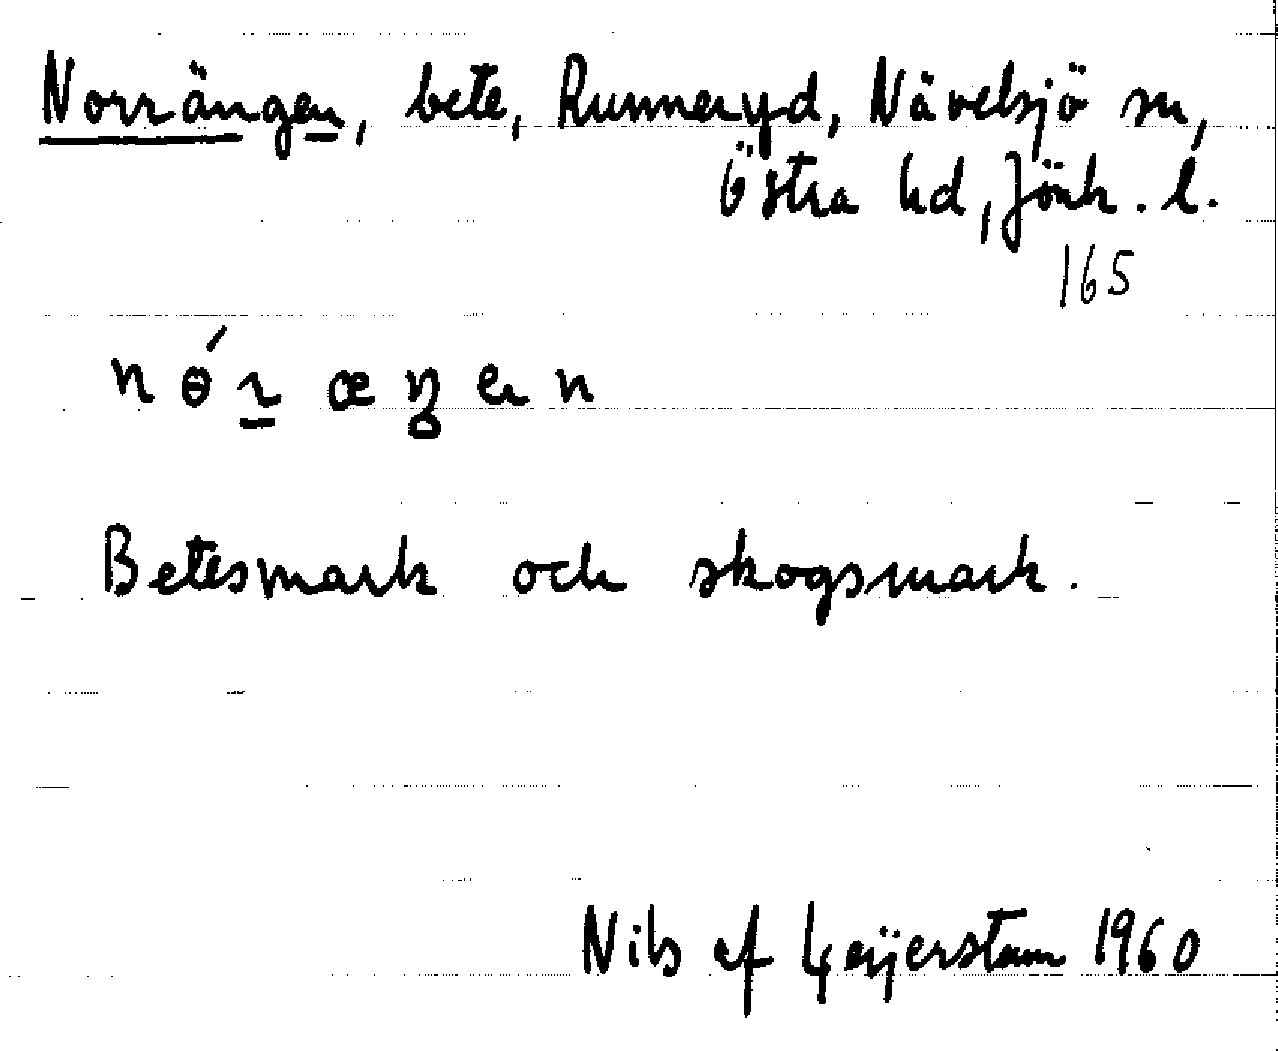 Norrängen, bete, Runneryd, Nävelsjö sn,
Östra hd, Jönk. l.
165
Betesmark och skogsmark.
Nils af Geijerstam 1960